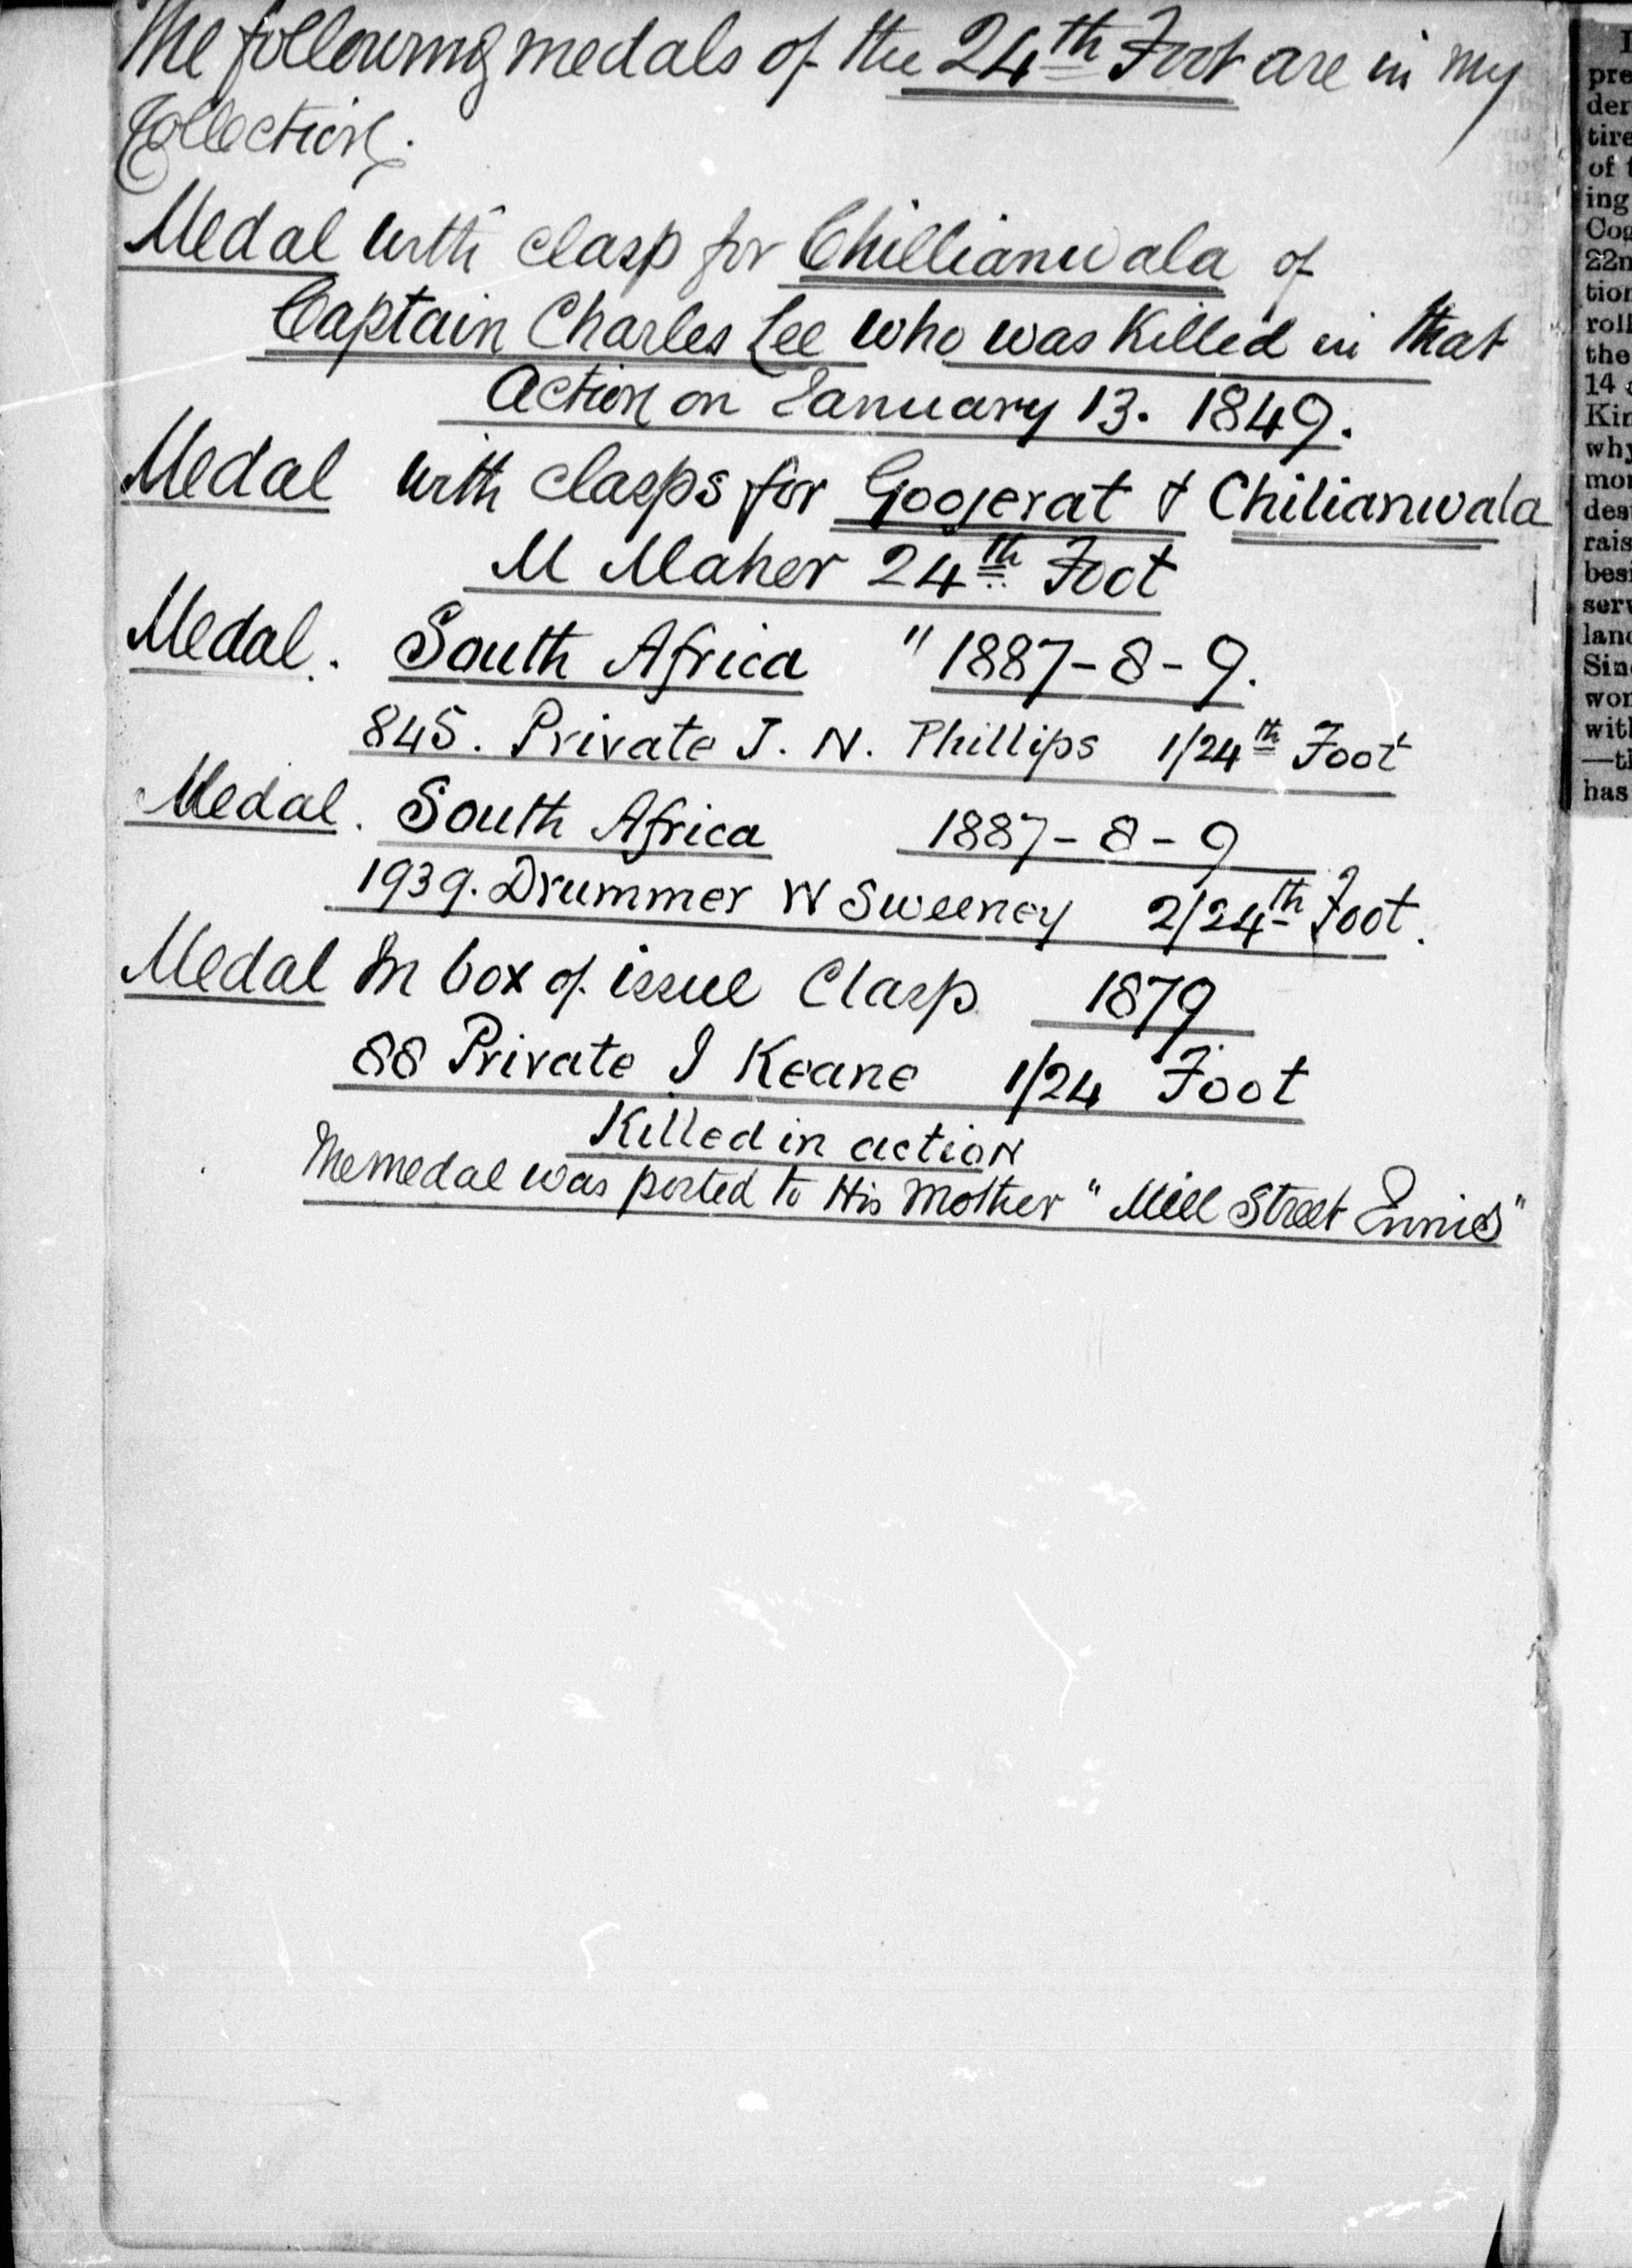 The following medals of the 24th Foot are in my
Collection.
Medal with clasp for Chillianwala of
Captain Charles Lee who was Killed in that
Action on January 13. 1849.
Medal with clasps for Goojerat & Chilianwala
M Maher 24th Foot
Medal. South Africa " 1887-8-9.
845. Private J. N. Phillips 1/24th Foot
Medal. South Africa 1887-8-9
1939. Drummer W Sweeney 2/24th Foot.
Medal In box of issue Clasp 1879
88 Private J Keane 1/24 Foot
Killed in action
The medal was posted to His Mother "Mill Street Ennis"
pre
der
tire
of t
ing
Cog
22n
tion
roll
the
14
Kin
why
mor
des
rais
besi
serv
land
Sin
wor
with
—th
has